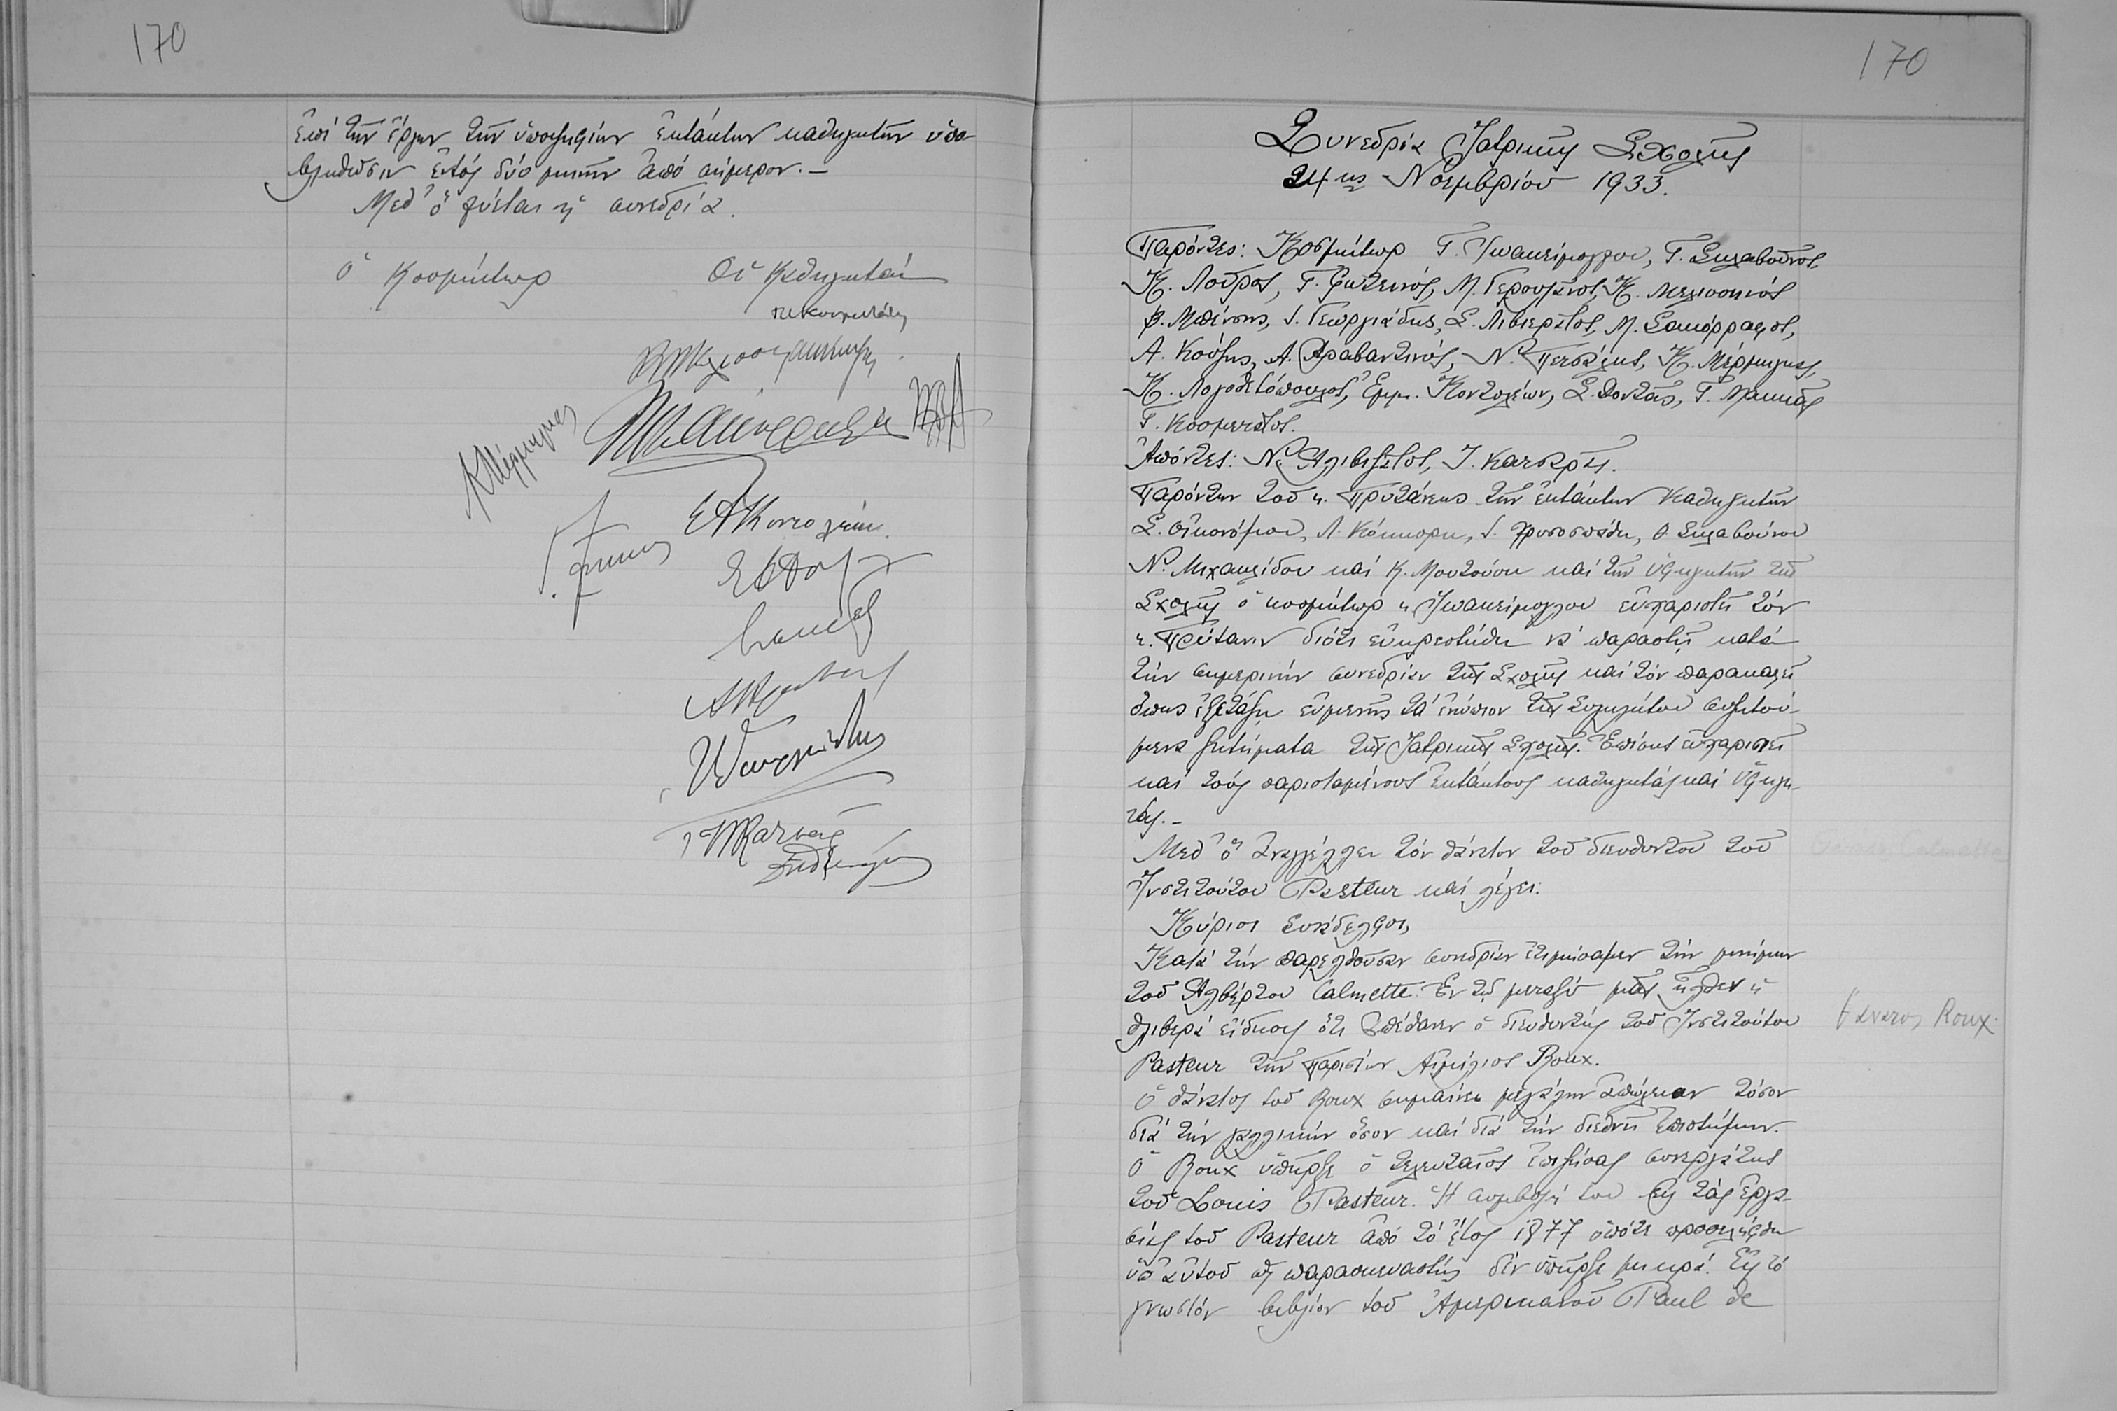 170
ἐπὶ τῶν ἔργων τῶν ὑποψηφίων ἐκτάκτων καθηγητῶν ὑπο-
βληθῶσιν ἐντός δύο μηνῶν ἀπό σήμερον.—
Μεθ' ὅ λύεται ἡ συνεδρία.
Ὁ Κοσμήτωρ
Οἱ Καθηγηταί
Κ Μέρμηγκας
ΕΑΚοντολέων
170
Συνεδρία Ἰατρικῆς Σχολῆς
24ης Νοεμβρίου 1933.
Παρόντες: Κοσμήτωρ Γ. Ἰωακείμογλου, Γ. Σκλαβοῦνος
Κ. Λοῦρος, Γ. Φωτεινός, Μ. Γερουλάνος, Κ. Μελισσηνός
Β. Μπένσης, Ι. Γεωργιάδης, Σ. Λιβιερᾶτος, Μ. Σακόρραφος,
Α. Κούζης, Α. Ἀραβαντινός, Ν. Πετσάλης, Κ. Μέρμηγκας,
Κ. Λογοθετόπουλος, Ἐμμ. Κοντολέων, Σ. Δοντᾶς, Γ. Μακκᾶς
Γ. Κοσμετᾶτος.
Ἀπόντες: Ν. Ἀλιβιζᾶτος, Ι. Κατσρᾶς.
Παρόντων τοῦ κ. Πρυτάνεως τῶν ἐκτάκτων καθηγητῶν
Σ. Οἰκονόμου, Λ. Κόκκορη, Ι. Χρυσοσπάθη, Θ. Σκλαβούνου
Ν. Μιχαηλίδου καί Κ. Μουτούση καί τῶν ὑφηγητῶν τῆς
Σχολῆς ὁ κοσμήτωρ κ. Ἰωακείμογλου εὐχαριστεῖ τόν
κ. Πρύτανιν διότι εὐηρεστήθη νά παραστῇ κατά
τήν σημερινήν συνεδρίαν τῆς Σχολῆς καί τόν παρακαλεῖ
ὅπως ἐξετάσῃ εὐμενῶς τά ἐνώπιον τῆς Συγκλήτου συζητού-
μενα ζητήματα τῆς Ἰατρικῆς Σχολῆς. Ἐπίσης εὐχαριστεῖ
καί τούς παρισταμένους ἐκτάκτους καθηγητάς καί ὑφηγη-
τάς.—
Μεθ' ὅ ἀναγγέλλει τόν θάνατον τοῦ διευθυντοῦ τοῦ
Ἰνστιτούτου Pasteur καί λέγει:
Κύριοι Συνάδελφοι,
Κατά τήν παρελθοῦσαν συνεδρίαν ἐτιμήσαμεν τήν μνήμην
τοῦ Ἀλβέρτου Calmette. Ἐν τῷ μεταξύ μᾶς ἦλθεν ἡ
θλιβερά εἴδησις ὅτι ἀπέθανεν ὁ διευθυντής τοῦ Ἰνστιτούτου
θάνατος Roux.
Pasteur τῶν Παρισίων Αἰμίλιος Roux.
Ὁ θάνατος τοῦ Roux σημαίνει μεγάλην ἀπώλειαν τόσον
διά τήν γαλλικήν ὅσον καί διά τήν διεθνῆ ἐπιστήμην.
Ὁ Roux ὑπῆρξε ὁ τελευταῖος ἐπιζήσας συνεργάτης
τοῦ Louis Pasteur. Ἡ συμβολή του εἰς τάς ἐργα-
σίας τοῦ Pasteur ἀπό τό ἔτος 1877 ὁπότε προσελήφθη
ὑπ' αὐτοῦ ὡς παρασκευαστής δέν ὑπῆρξε μικρά. Εἰς τό
γνωστόν βιβλίον τοῦ Ἀμερικανοῦ Paul de